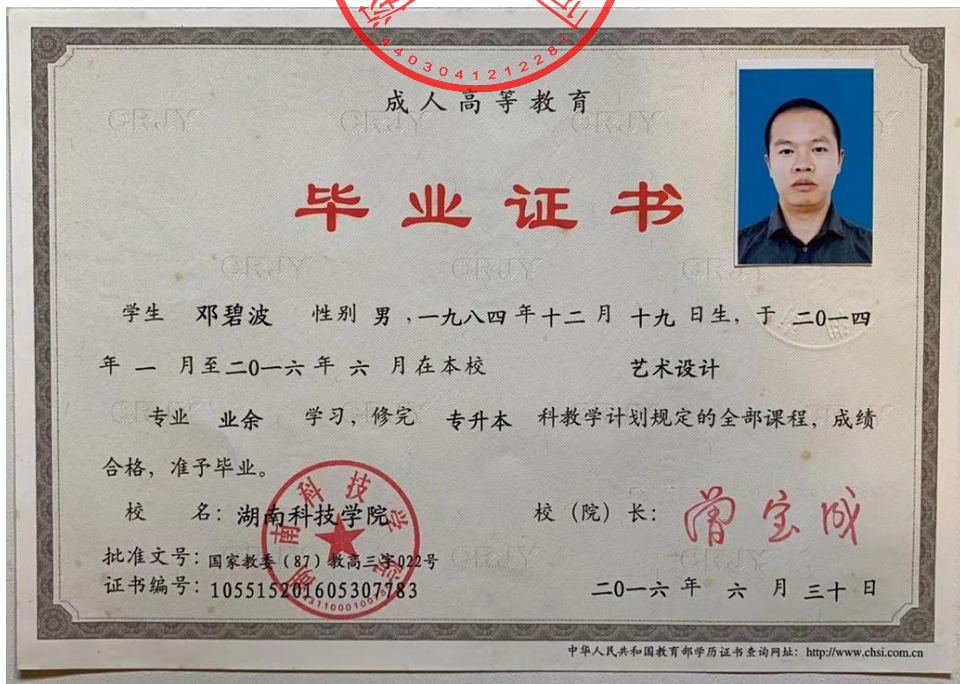 4403041212281
成人高等教育
毕业证书
学生 邓碧波 性别 男，一九八四年十二月 十九日生，于 二0一四
年 一 月至二0一六年 六 月在本校 艺术设计
专业 业余 学习，修完 专升本 科教学计划规定的全部课程，成绩
合格，准予毕业。
校 名：湖南科技学院
校（院）长：曾宝成
批准文号：国家教委（87）教高三字022号
证书编号：105515201605307783
二0一六年 六 月 三十 日
中华人民共和国教育部学历证书查询网址：http://www.chsi.com.cn
CRJY CRJY CRJY
CRJY CRJY CRJY